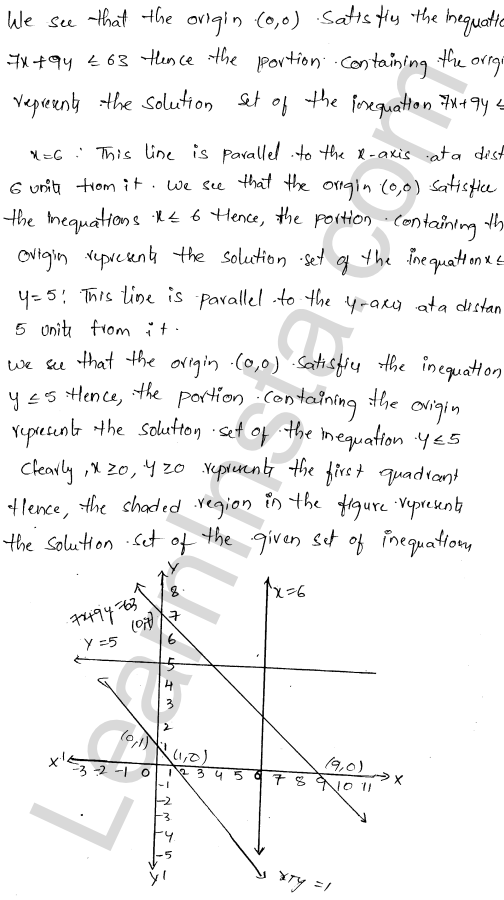 We see that the origin (0,0) satisfies the inequatio
7x+9y ≤ 63 Hence the portion containing the origi
represents the solution set of the inequation 7x+9y ≤
x=6 : This line is parallel to the x-axis at a dist
6 units from it. We see that the origin (0,0) satisfies
the inequations x ≤ 6 Hence, the portion containing th
origin represents the solution set of the inequation x ≤
y=5: This line is parallel to the y-axis at a distan
5 units from it.
We see that the origin (0,0) satisfies the inequation
y ≤ 5 Hence, the portion containing the origin
represents the solution set of the inequation y ≤ 5
Clearly, x ≥ 0, y ≥ 0 represents the first quadrant
Hence, the shaded region in the figure represents
the solution set of the given set of inequations
Y
8
x=6
7x+9y=63
(0,7)
7
y=5
6
5
4
3
2
(0,1)
1
(1,0)
(9,0)
X'
-3 -2 -1 0 1 2 3 4 5 6 7 8 9 10 11
X
-1
-2
-3
-4
-5
Y'
x+y=1
LearnInsta.com